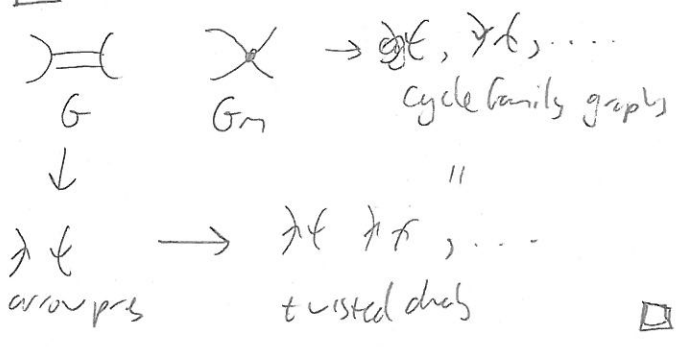 → , , ....
G Gm cycle family graphs
↓ =
→ , ...
arrow pres twisted duals
□